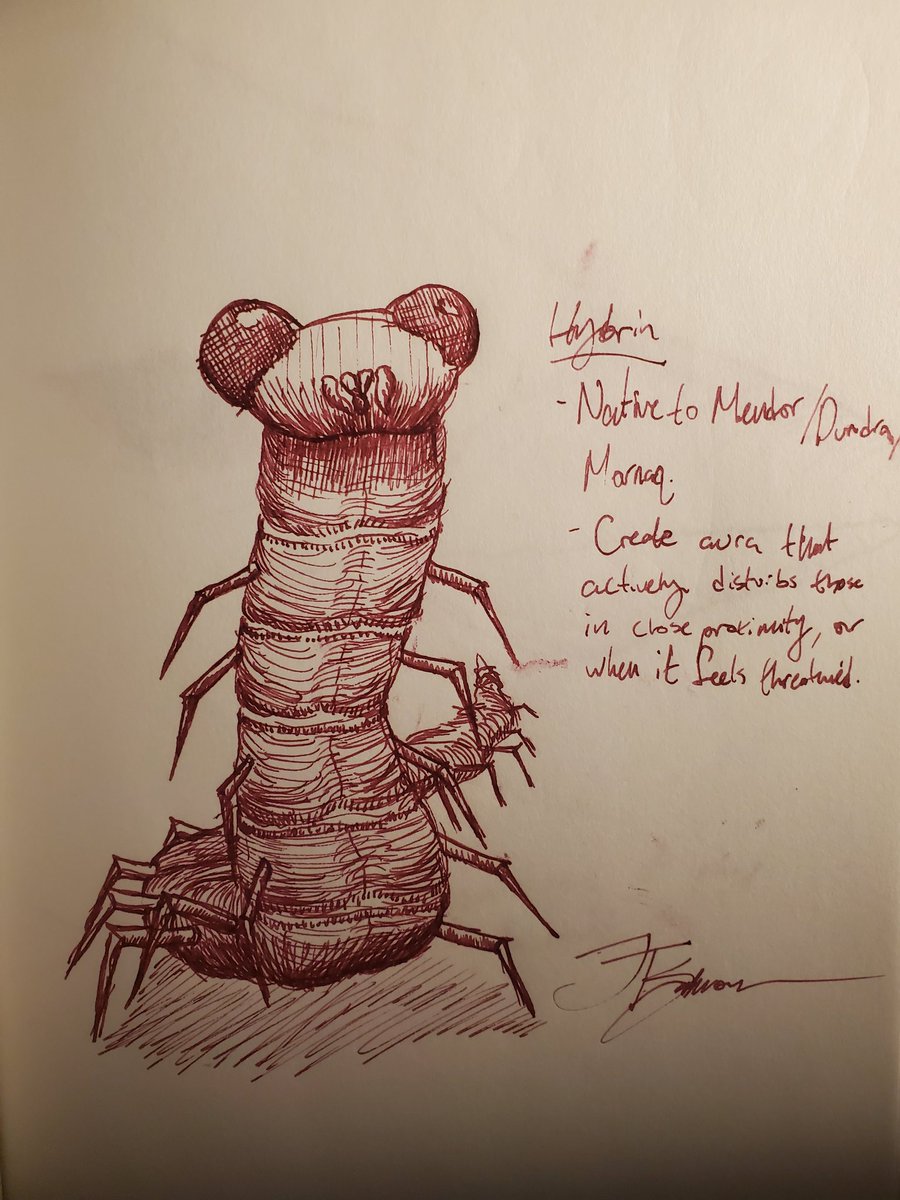 Haybrin
- Native to Mendor/Dundra,
Mornaq.
- Create aura that
actively disturbs those
in close proximity, or
when it feels threatened.